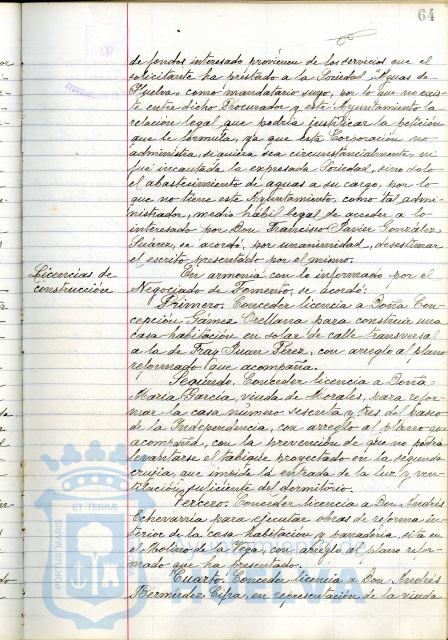 64
de fondos interesado provienen de los servicios que el
solicitante ha prestado a la Sociedad "Aguas de
Huelva" como mandatario suyo, por lo que no exis-
te entre dicho Procurador y este Ayuntamiento la
relación legal que podría justificar la petición
que se formula, ya que esta Corporación no
administra, siquiera sea circunstancialmente, ni
fué incautada la expresada Sociedad, sino solo
el abastecimiento de aguas a su cargo, por lo
que no tiene este Ayuntamiento, como tal admi-
nistrador, medio hábil legal de acceder a lo
interesado por Don Francisco Javier González
Suárez, se acordó, por unanimidad, desestimar
el escrito presentado por el mismo.
Licencias de
construcción
En armonía con lo informado por el
Negociado de Fomento, se acordó:
Primero. Conceder licencia a Doña Con-
cepción Gámez Orellana para construir una
casa habitación en solar de calle transversal
a la de Fray Juan Pérez, con arreglo al plano
reformado que acompaña.
Segundo. Conceder licencia a Doña
María García, viuda de Morales, para refor-
mar la casa número sesenta y tres del Paseo
de la Independencia, con arreglo al plano que
acompaña, con la prevención de que no podrá
levantarse el tabique proyectado en la segunda
crujia, que impide la entrada de la luz y ven-
tilación suficiente del dormitorio.
Tercero. Conceder licencia a Don Andrés
Echevarria para ejecutar obras de reforma in-
terior de la casa habitación y panadería, sita en
el Molino de la Vega, con arreglo al plano refor-
mado que ha presentado.
Cuarto. Conceder licencia a Don Andrés
Bermúdez en representación de la viuda
PORTUS MARIS
ET TERRAE
HUELVA